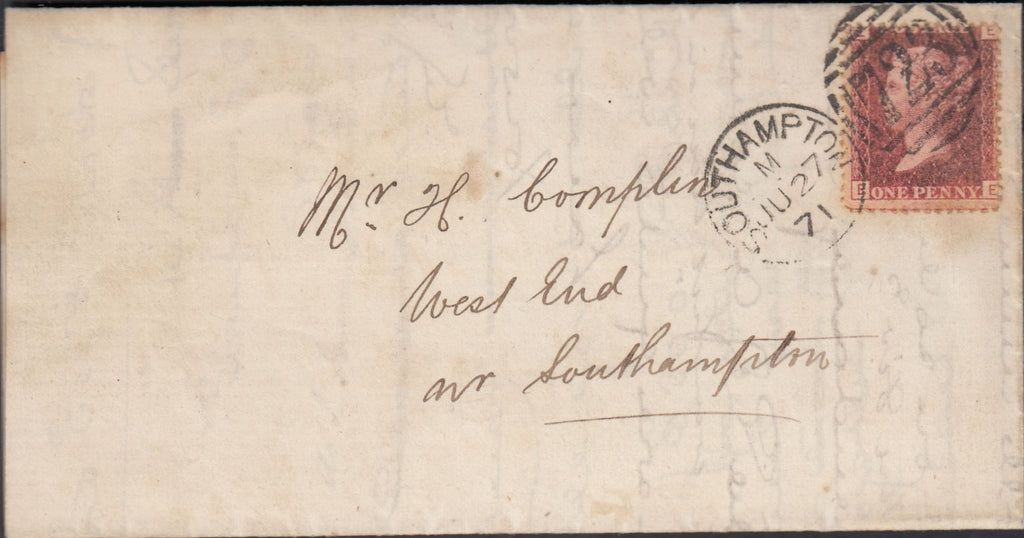 E E
723
SOUTHAMPTON
M
JU 27
71
S
E ONE PENNY E
Mr H. Complin
West End
nr Southampton